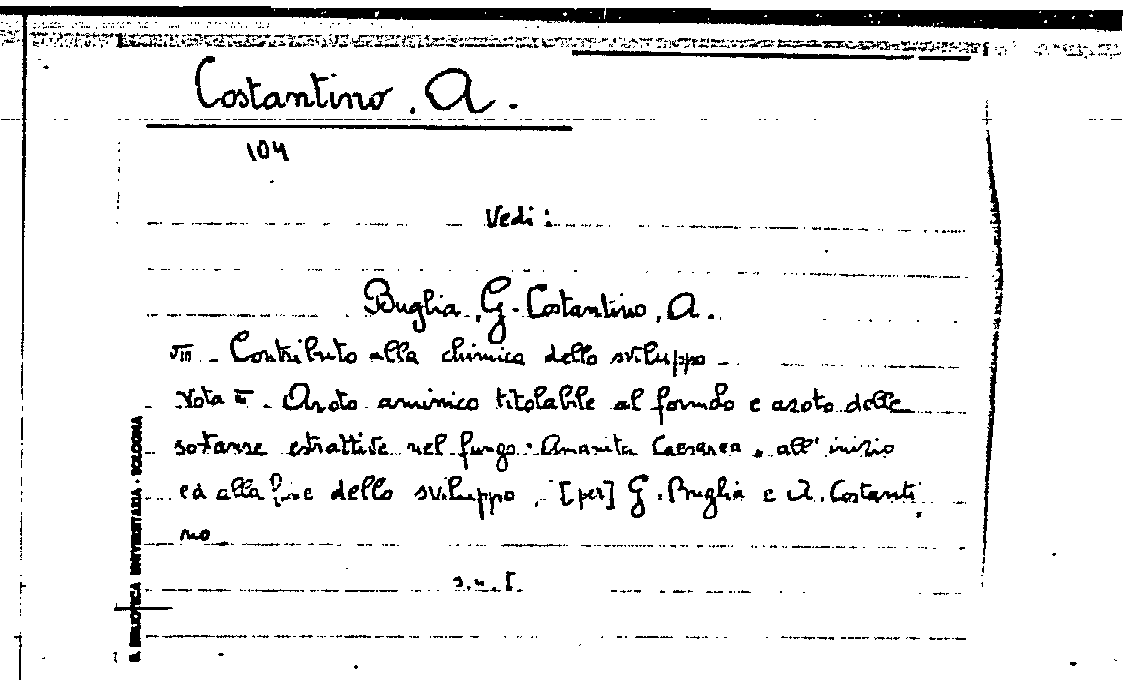 Costantino, A.
104
Vedi:
Buglia, G. - Costantino, A.
VIII - Contributo alla chimica dello sviluppo -
Nota III - Azoto aminico titolabile al formolo e azoto delle
sostanze estrattive nel fungo "Amanita Caesarea" all'inizio
ed alla fine dello sviluppo, [per] G. Buglia e A. Costanti
no
s.n.t.
B. BIBLIOTECA UNIVERSITARIA - BOLOGNA